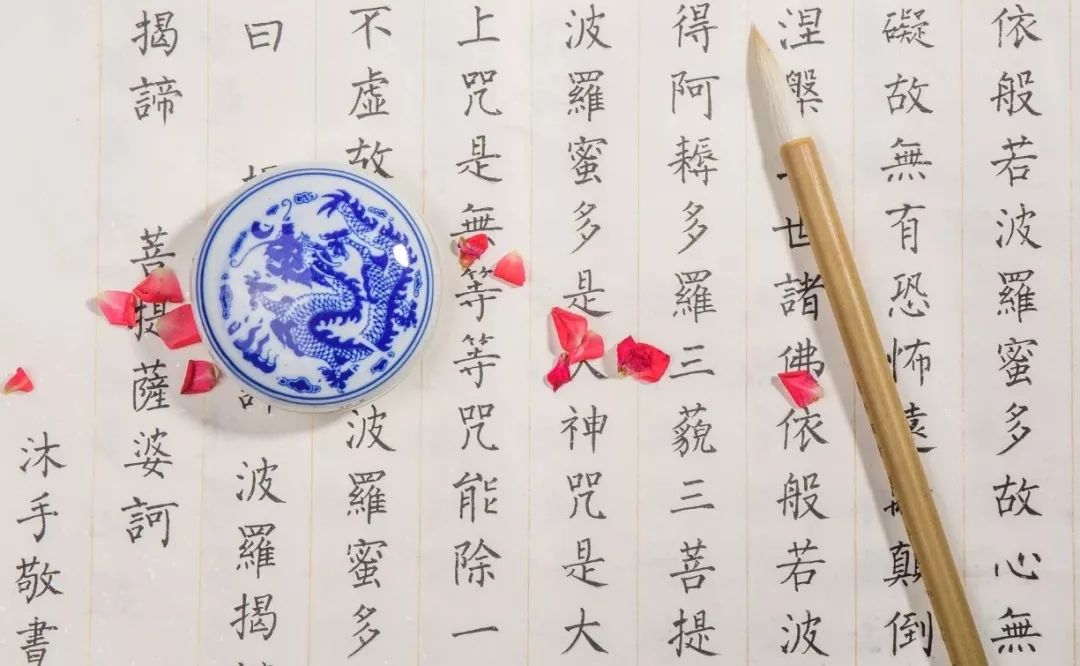 依般若波羅蜜多故心無
礙故無有恐怖遠顛倒
涅槃世諸佛依般若波
得阿耨多羅三藐三菩提
波羅蜜多是大神咒是大
上咒是無等等咒能除一
不虛故波羅蜜多
曰波羅揭
揭諦菩提薩婆訶
沐手敬書